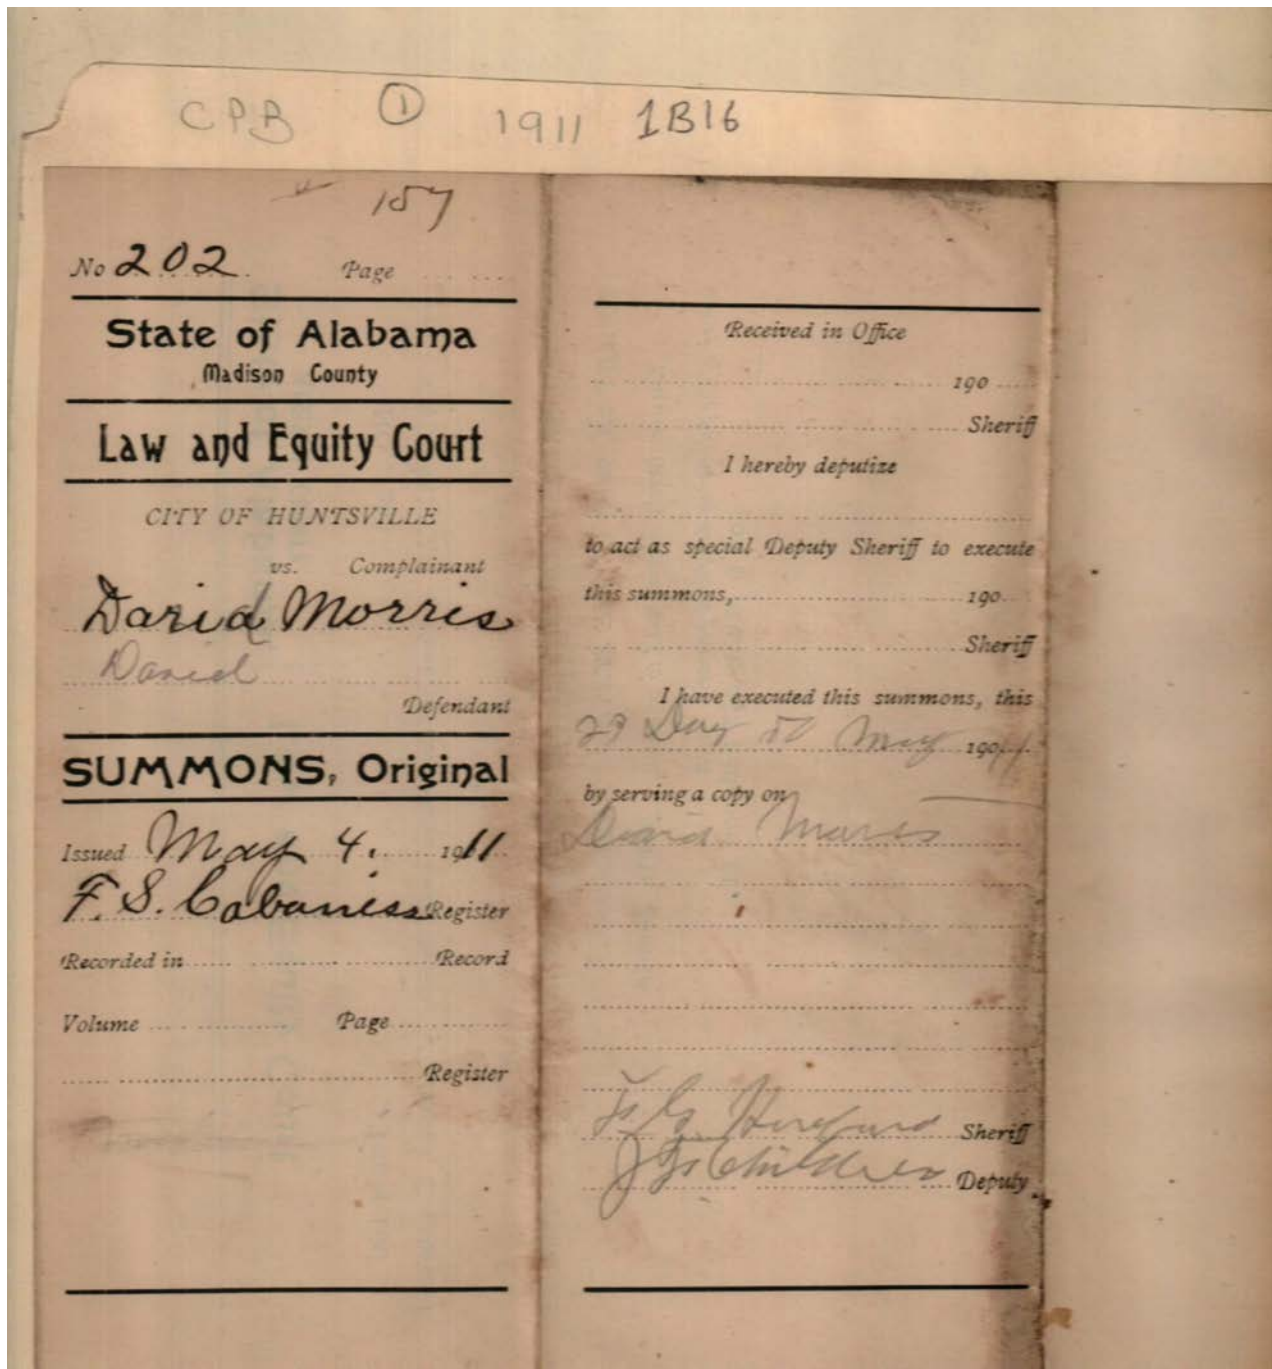 CPB ① 1911 1B16
157
No 202. Page
State of Alabama
Madison County
Law and Equity Court
CITY OF HUNTSVILLE
vs. Complainant
David Morris
David
Defendant
SUMMONS, Original
Issued May 4. 1911
F. S. Cabaniss Register
Recorded in Record
Volume Page
Register
Received in Office
190
Sheriff
I hereby deputize
to act as special Deputy Sheriff to execute
this summons, 190
Sheriff
I have executed this summons, this
29 Day of May 1911
by serving a copy on
David Mores
Sheriff
Deputy